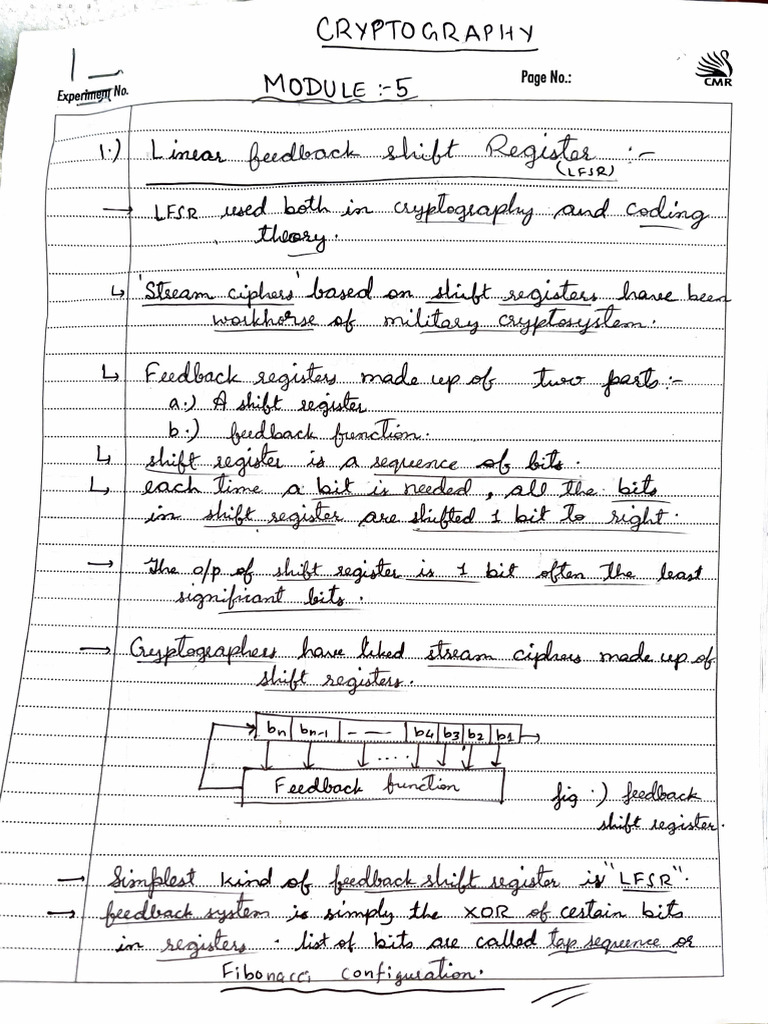 CRYPTOGRAPHY
1
Experiment No.
MODULE :- 5
Page No.:
CMR
1.) Linear feedback shift Register :-
(LFSR)
→ LFSR used both in cryptography and coding
theory.
↳ 'Stream ciphers' based on shift registers have been
workhorse of military cryptosystem.
↳ Feedback registers made up of two parts :-
a.) A shift register
b.) feedback function.
↳ shift register is a sequence of bits.
↳ each time a bit is needed, all the bits
in shift register are shifted 1 bit to right.
→ The o/p of shift register is 1 bit often the least
significant bits.
→ Cryptographers have liked stream ciphers made up of
shift registers.
bn bn-1 - — - b4 b3 b2 b1
....
Feedback function
fig .) feedback
shift register.
→ Simplest kind of feedback shift register is "LFSR".
→ feedback system is simply the XOR of certain bits
in registers . list of bits are called tap sequence or
Fibonacci configuration.